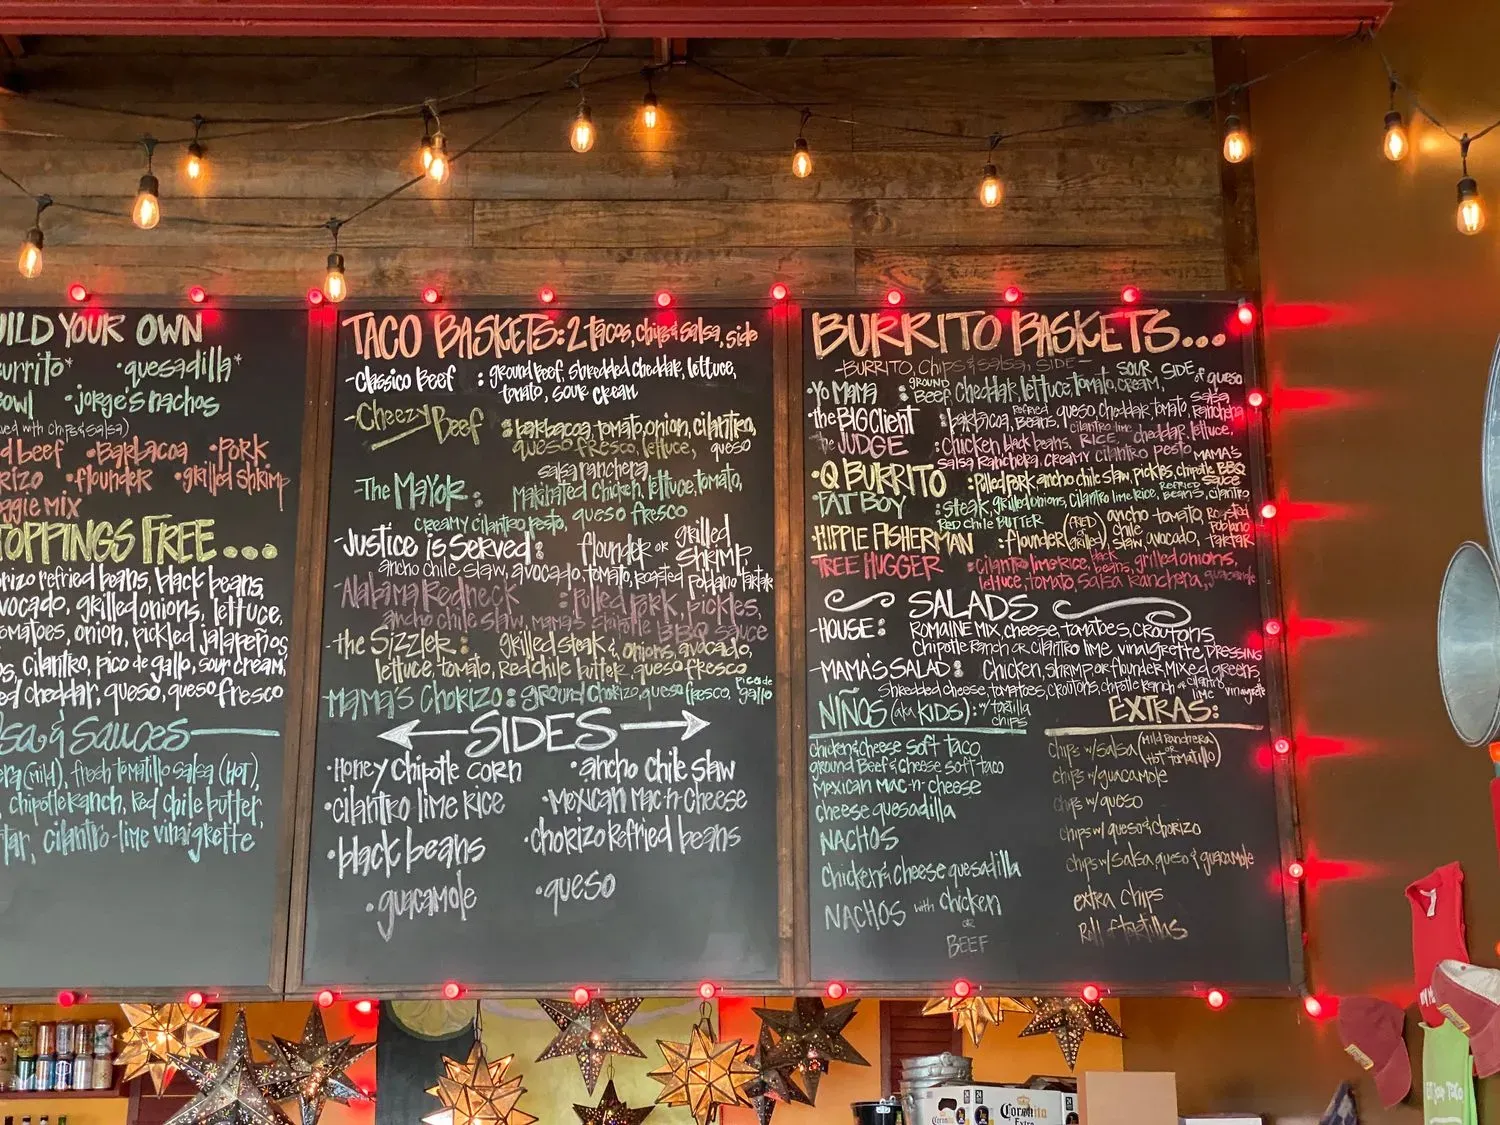 UILD YOUR OWN
urrito* •quesadilla*
Bowl •jorge's nachos
ued with chips & salsa)
d beef •BaRBacoa •PORK
rizo •flounder •grilled shrimp
eggie MIX
TOPPINGS FREE...
orizo refried beans, black beans,
avocado, grilled onions, lettuce,
omatoes, onion, pickled jalapeños
os, cilantro, pico de gallo, sour cream,
ed cheddar, queso, queso fresco
sa & Sauces
era (Mild), fresh tomatillo salsa (HOT),
chipotle ranch, Red chile butter,
tar, cilantro-lime vinaigrette
TACO BASKETS: 2 tacos, chips & salsa, side
-Classico Beef : ground beef, shredded cheddar, lettuce,
tomato, sour cream
-Cheezy Beef : barbacoa, tomato, onion, cilantro,
queso fresco, lettuce, queso
salsa ranchera
-The MAYOR: Marinated chicken, lettuce, tomato,
creamy cilantro pesto, queso fresco
-Justice is Served: flounder or grilled shrimp,
ancho chile slaw, avocado, tomato, roasted Poblano tartar
-Alabama Redneck : Pulled Pork, pickles,
ancho chile slaw, mama's chipotle BBQ sauce
-the Sizzler: grilled steak & onions, avocado,
lettuce, tomato, Red chile butter, queso fresco
-MAMA'S CHORIZO: ground chorizo, queso fresco, pico de gallo
SIDES
•Honey Chipotle corn •ancho chile slaw
•cilantro lime rice •Mexican Mac-n-cheese
•black beans •chorizo refried beans
•guacamole •queso
BURRITO BASKETS...
-BURRITO, chips & salsa, SIDE-
•Yo Mama : GROUND BEEF, cheddar, lettuce, tomato, SOUR CREAM, SIDE of queso
•the BIG Client : barbacoa, Refried BEANS, queso, cheddar, tomato, salsa Ranchera
the JUDGE : Chicken, black beans, cilantro-lime RICE, cheddar, lettuce,
salsa Ranchera, creamy cilantro pesto
•Q BURRITO : Pulled Pork, ancho chile slaw, pickles, chipotle MAMA'S BBQ sauce
FAT BOY : steak, grilled onions, cilantro lime rice, REFRIED beans, cilantro,
RED chile BUTTER
•HIPPIE FISHERMAN : flounder (FRIED or grilled), ancho chile slaw, tomato, avocado, Roasted Poblano TARTAR
TREE HUGGER : cilantro lime rice, black beans, grilled onions,
lettuce, tomato, salsa Ranchera, guacamole
SALADS
•HOUSE: ROMAINE MIX, cheese, tomatoes, CROUTONS,
Chipotle Ranch OR cilantro lime vinaigrette DRESSING
-MAMA'S SALAD: Chicken, shrimp or flounder, mixed greens,
shredded cheese, tomatoes, croutons, chipotle ranch or cilantro lime vinaigrette
NIÑOS (aka KIDS): w/ tortilla chips
chicken & cheese soft taco
ground Beef & cheese soft taco
Mexican mac-n-cheese
cheese quesadilla
NACHOS
chicken & cheese quesadilla
NACHOS with chicken
or
BEEF
EXTRAS:
chips w/ salsa (Mild Ranchera or HOT tomatillo)
chips w/ guacamole
chips w/ queso
chips w/ queso & chorizo
chips w/ salsa, queso & guacamole
extra chips
Roll of tortillas
Coronita
Extra